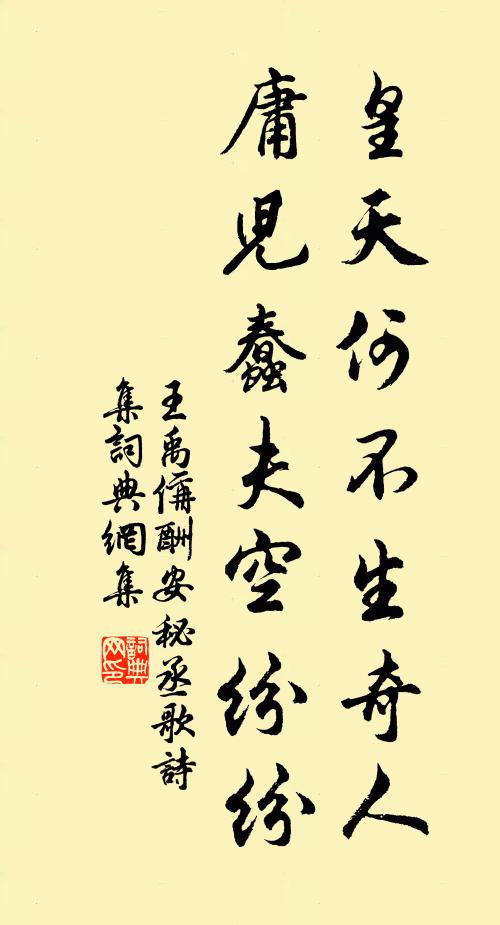 皇天何不生奇人
庸児蠢夫空紛紛
王禹偁酬安秘丞歌詩
集詞典網集
詞典
网印